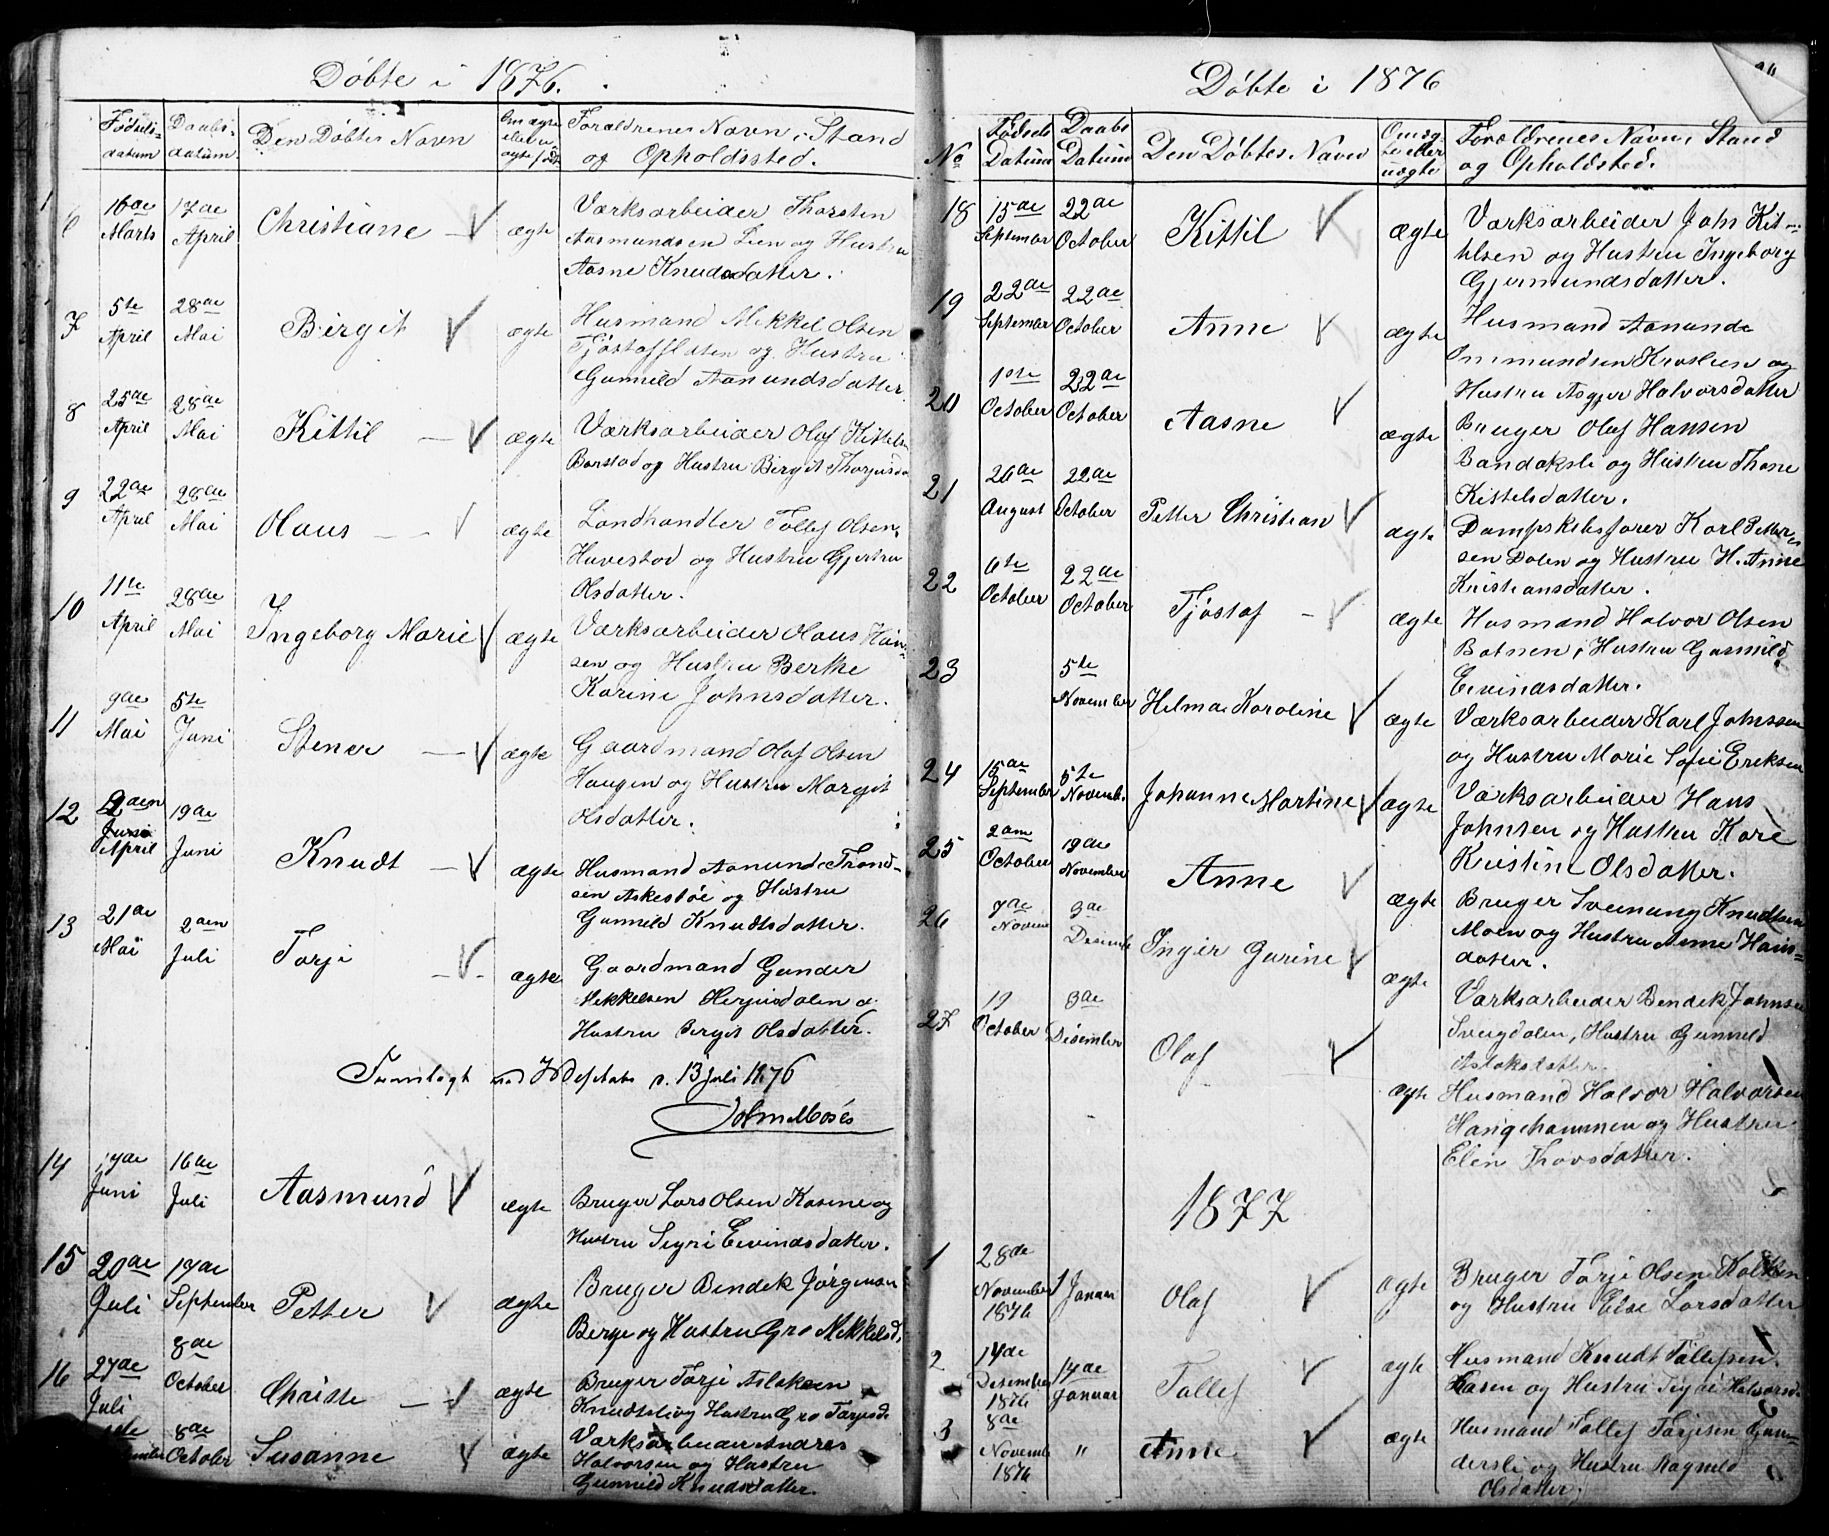 Döbte i 1876.
Fødsels-
datum
Daabs-
datum
Den Döbtes Navn
Om ægte
eller u-
ægte født
Forældrenes Navn, Stand
og Opholdssted.
6
16de
Marts
17de
April
Christiane
ægte
Værksarbeider Thorsten
Aasmundsen Lien og Hustru
Aasne Knudsdatter.
7
5te
April
28de
Mai
Birgit
ægte
Husmand Mikkel Olsen
Tjöstofflaten og Hustru
Gunnild Aanundsdatter
8
25de
April
28de
Mai
Kittil
ægte
Værksarbeider Olaf Kittels
Barstad og Hustru Birgit Thorjusd
9
22de
April
28de
Mai
Olaus
ægte
Landhandler Tollef Olsen
Huvestad og Hustru Gjertru
Olsdatter.
10
11te
April
28de
Mai
Ingeborg Marie
ægte
Værksarbeider Olaus Han-
sen og Hustru Berthe
Karine Johnsdatter.
11
9de
Mai
5te
Juni
Stener
ægte
Gaardmand Olaf Olsen
Haugen og Hustru Margit
Olsdatter.
12
2den
Juni
April
19de
Juni
Knudt
ægte
Husmand Aanund Trond-
sen Askestöe og Hustru
Gunnild Knudtsdatter.
13
21de
Mai
2den
Juli
Torje
ægte
Gaardmand Gunder
Mikkelsen Herjusdalen o.
Hustru Bergit Olsdatter.
Fremlagt ved p. 13 Juli 1876
14
17de
Juni
16de
Juli
Aasmund
ægte
Bruger Lars Olsen Kasene og
Hustru Sigri Eivindsdatter.
15
20de
Juli
17de
September
Petter
ægte
Bruger Bendek Jørgensen
Berge og Hustru Gro Mikkelsd.
16
27de
Juli
8de
October
Christe
ægte
Bruger Torje Aslaksen
Knudtsli og Hustru Gro Torjesd.
8de
October
Susanne
ægte
Værksarbeider Andres
Halvorsen og Hustru
Gunnild Knudsdatter.
Döbte i 1876
No
Fødsels
Datum
Daabs
Datum
Den Döbtes Navn
Om æg-
te eller
uægte
Forældrenes Navn, Stand
og Opholdsted.
18
15de
September
22de
October
Kittil
ægte
Værksarbeider John Kit-
tilsen og Hustru Ingeborg
Gjermundsdatter.
19
22de
September
22de
October
Anne
ægte
Husmand Aanund
Ommundsen Kroslien og
Hustru Asgjer Halvorsdatter
20
1ste
October
22de
October
Aasne
ægte
Bruger Olaf Hansen
Bandaksli og Hustru Thone
Kittelsdatter.
21
26de
August
22de
October
Petter Christian
ægte
Dampskibsfører Karl Petter-
sen Dalen og Hustru H. Anne
Kristiansdatter.
22
6te
October
22de
October
Tjöstof
ægte
Husmand Halvor Olsen
Botnen, Hustru Gunnild
Eivindsdatter.
23
5te
November
Helma Karoline
ægte
Værksarbeider Karl Johnssen
og Hustru Marie Sofie Eriksen
24
15de
September
5te
Novemb.
Johanne Martine
ægte
Værksarbeider Hans
Johnsen og Hustru Kare
Kristine Olsdatter.
25
2den
October
19de
November
Anne
ægte
Bruger Sveinung Knudtsen
Moen og Hustru Anne Hans-
datter.
26
7de
Novem
3de
Desembe
Inger Gurine
ægte
Værksarbeider Bendik Johnsen
Sveigdalen, Hustru Gunnild
Aslaksdatter.
27
19
October
3de
Disember
Olaf
ægte
Husmand Halvor Halvorsen
Haugehammen og Hustru
Elen Thorsdatter.
1877
1
28de
November
1876
1 Januar
Olaf
ægte
Bruger Torje Olsen
og Hustru Else Larsdatter
2
14de
Desember
1876
14de
Januar
Tollef
ægte
Husmand Knudt Tollefsen
Aasen og Hustru Signe Halvorsd.
3
8de
Novemb
1876
"
Anne
ægte
Husmand Tollef Torjesen Gun-
dersli og Hustru Ragnild
Olsdatter.